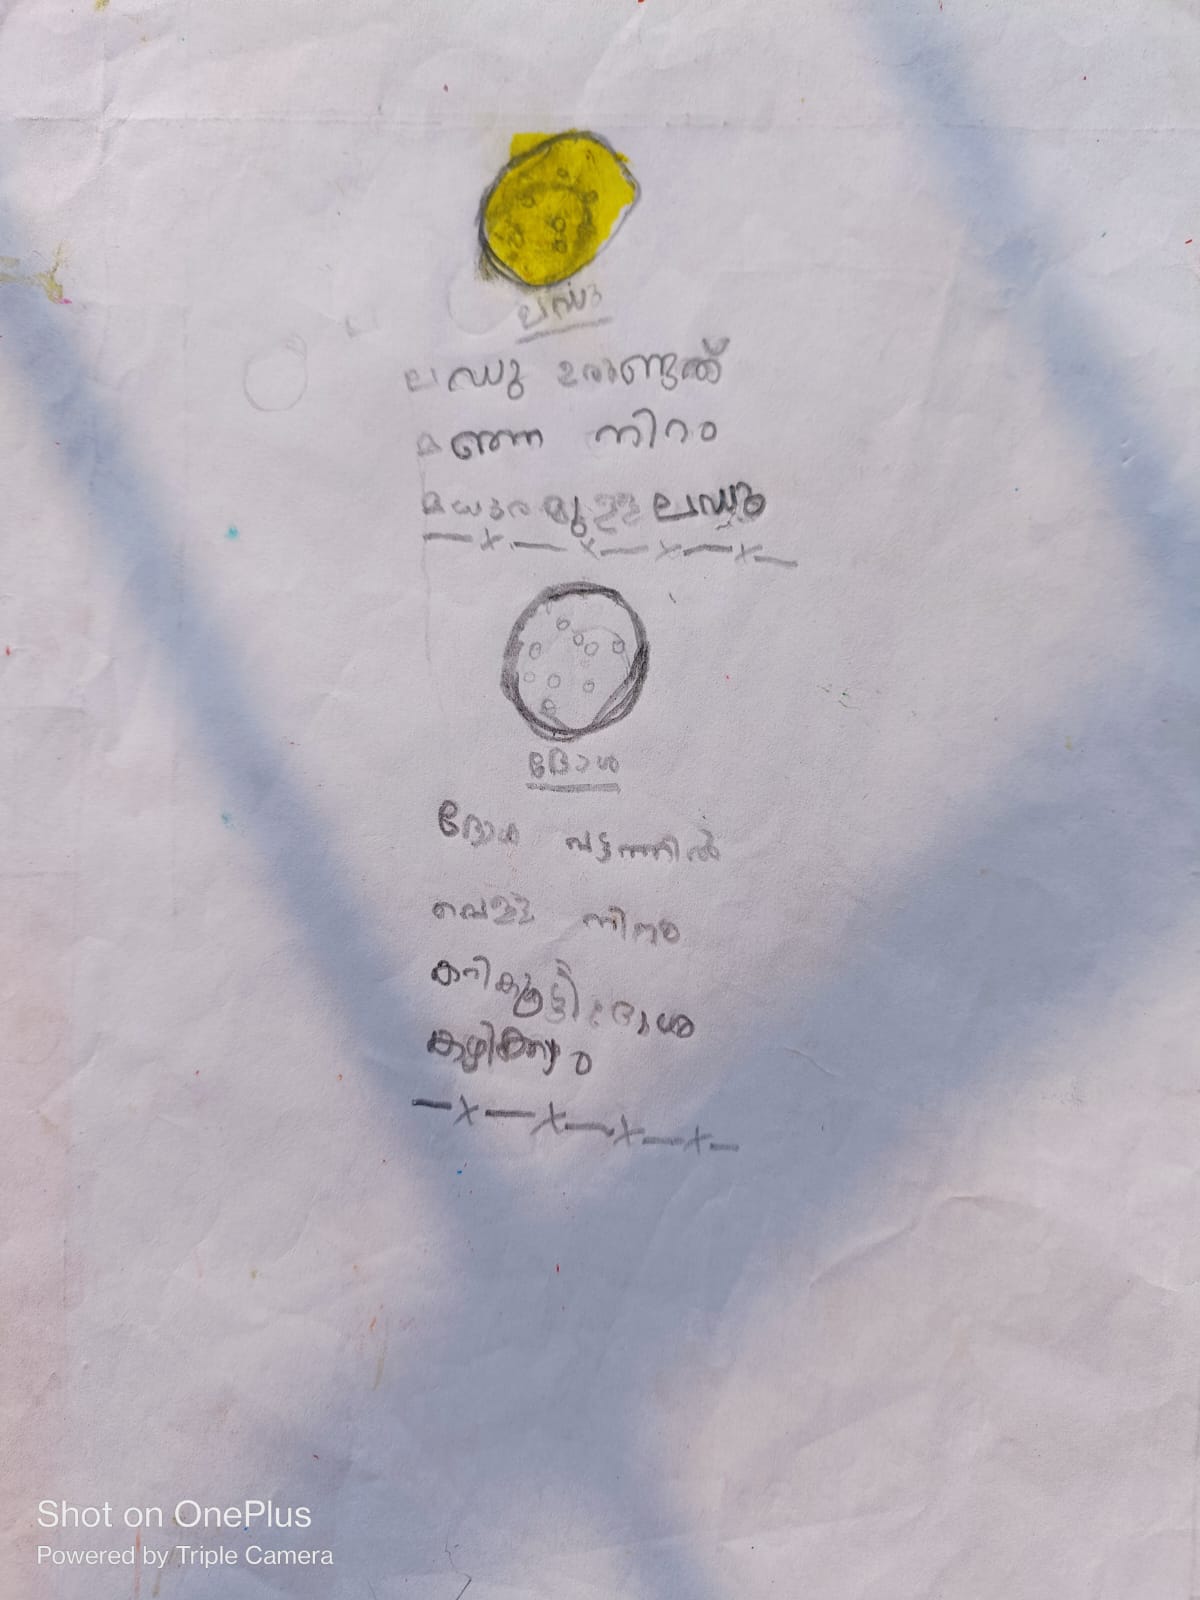 ലഡു
ലഡു ഉരുണ്ടത്
മഞ്ഞ നിറം
മധുരമുള്ള ലഡു
ദോശ
ദോശ വട്ടത്തിൽ
വെള്ള നിറം
കറികൂട്ടി ദോശ
കഴിക്കാം
Shot on OnePlus
Powered by Triple Camera